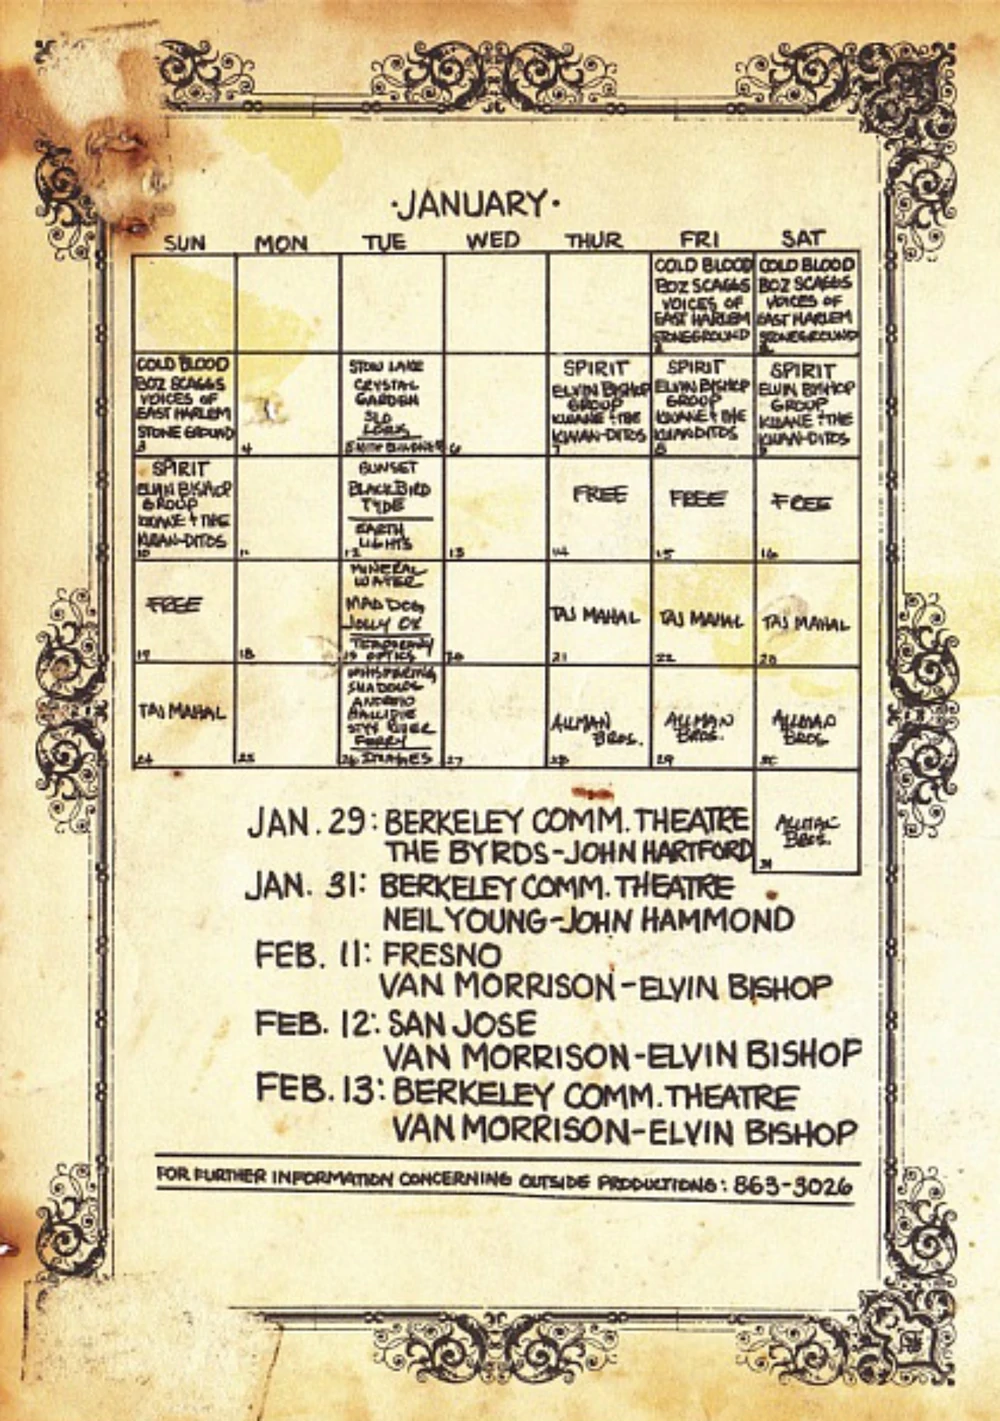 ·JANUARY·
SUN MON TUE WED THUR FRI SAT
COLD BLOOD
BOZ SCAGGS
VOICES OF
EAST HARLEM
STONEGROUND
COLD BLOOD
BOZ SCAGGS
VOICES OF
EAST HARLEM
STONEGROUND
COLD BLOOD
BOZ SCAGGS
VOICES OF
EAST HARLEM
STONE GROUND
3
4
STOW LAKE
CRYSTAL
GARDEN
6
SPIRIT
ELVIN BISHOP
GROUP
KWANE + THE
KWAN-DITOS
7
SPIRIT
ELVIN BISHOP
GROUP
KWANE + THE
KWANDITOS
8
SPIRIT
ELVIN BISHOP
GROUP
KWANE + THE
KWAN-DITOS
9
SPIRIT
ELVIN BISHOP
GROUP
KWANE + THE
KWAN-DITOS
10
11
SUNSET
BLACKBIRD
TYDE
EARTH
LIGHTS
12
13
FREE
14
FREE
15
FREE
16
FREE
17
18
MINERAL
WATER
MAD DOG
JOLLY OX
TEMPORARY
19 OPTICS
20
TAJ MAHAL
21
TAJ MAHAL
22
TAJ MAHAL
23
TAJ MAHAL
24
25
WHISPERING
SHADOWS
ANDREW
HALLIDIE
STYX RIVER
FERRY
26 IMAGES
27
ALLMAN
BROS.
28
ALLMAN
BROS.
29
ALLMAN
BROS.
30
ALLMAN
BROS.
31
JAN. 29: BERKELEY COMM. THEATRE
THE BYRDS-JOHN HARTFORD
JAN. 31: BERKELEY COMM. THEATRE
NEIL YOUNG-JOHN HAMMOND
FEB. 11: FRESNO
VAN MORRISON-ELVIN BISHOP
FEB. 12: SAN JOSE
VAN MORRISON-ELVIN BISHOP
FEB. 13: BERKELEY COMM. THEATRE
VAN MORRISON-ELVIN BISHOP
FOR FURTHER INFORMATION CONCERNING OUTSIDE PRODUCTIONS: 863-3026